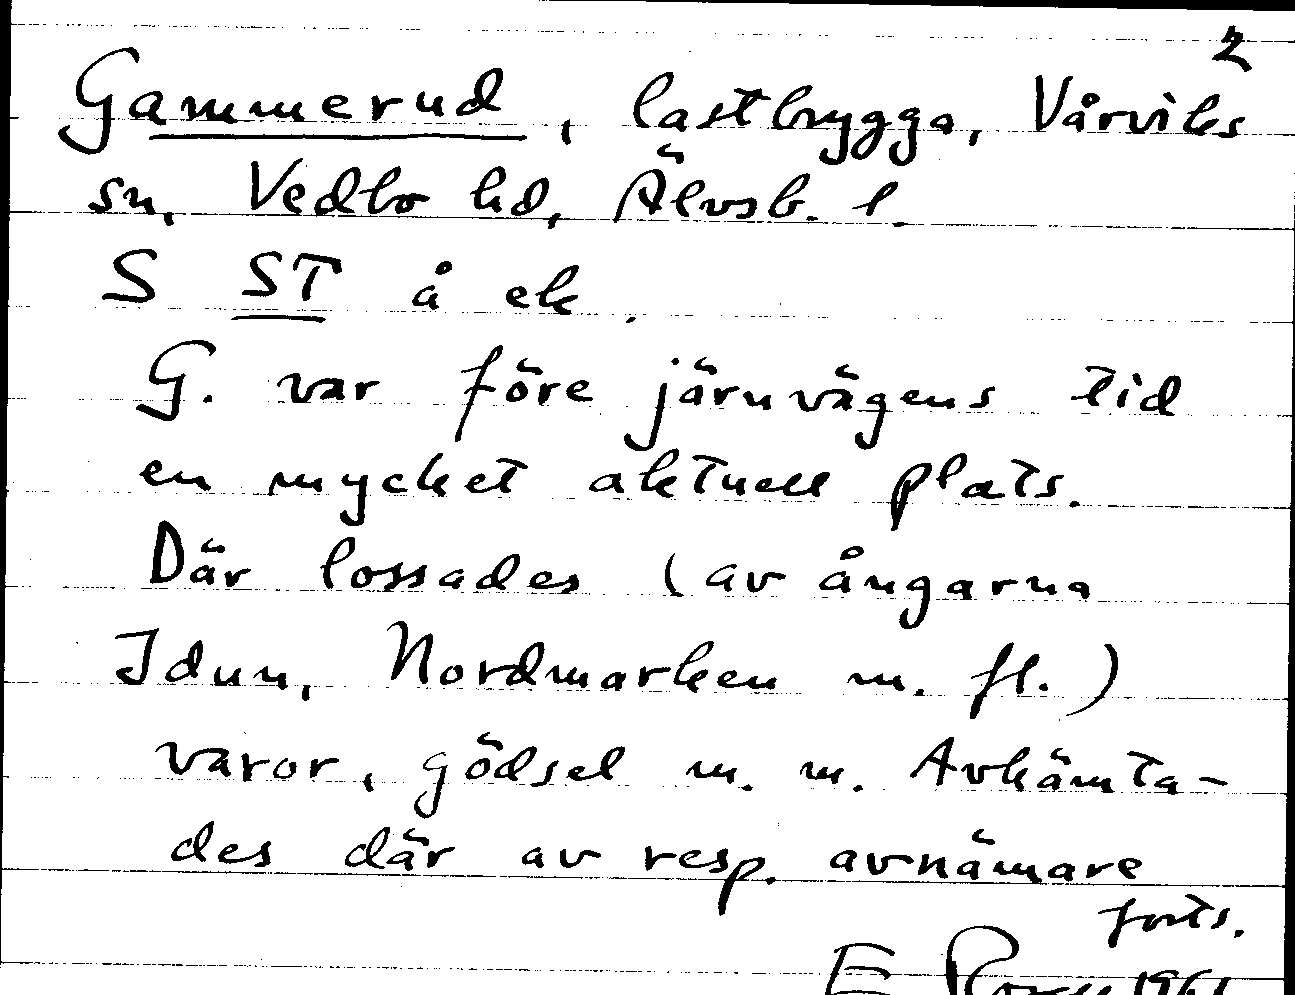 2
Gammerud, lastbrygga, Vårviks
sn, Vedbo hd, Älvsb. l.
S ST å ek.
G. var före järnvägens tid
en mycket aktuell plats.
Där lossades (av ångarna
Idun, Nordmarken m. fl.)
varor, gödsel m. m. Avhämta-
des där av resp. avnämare
forts.
E